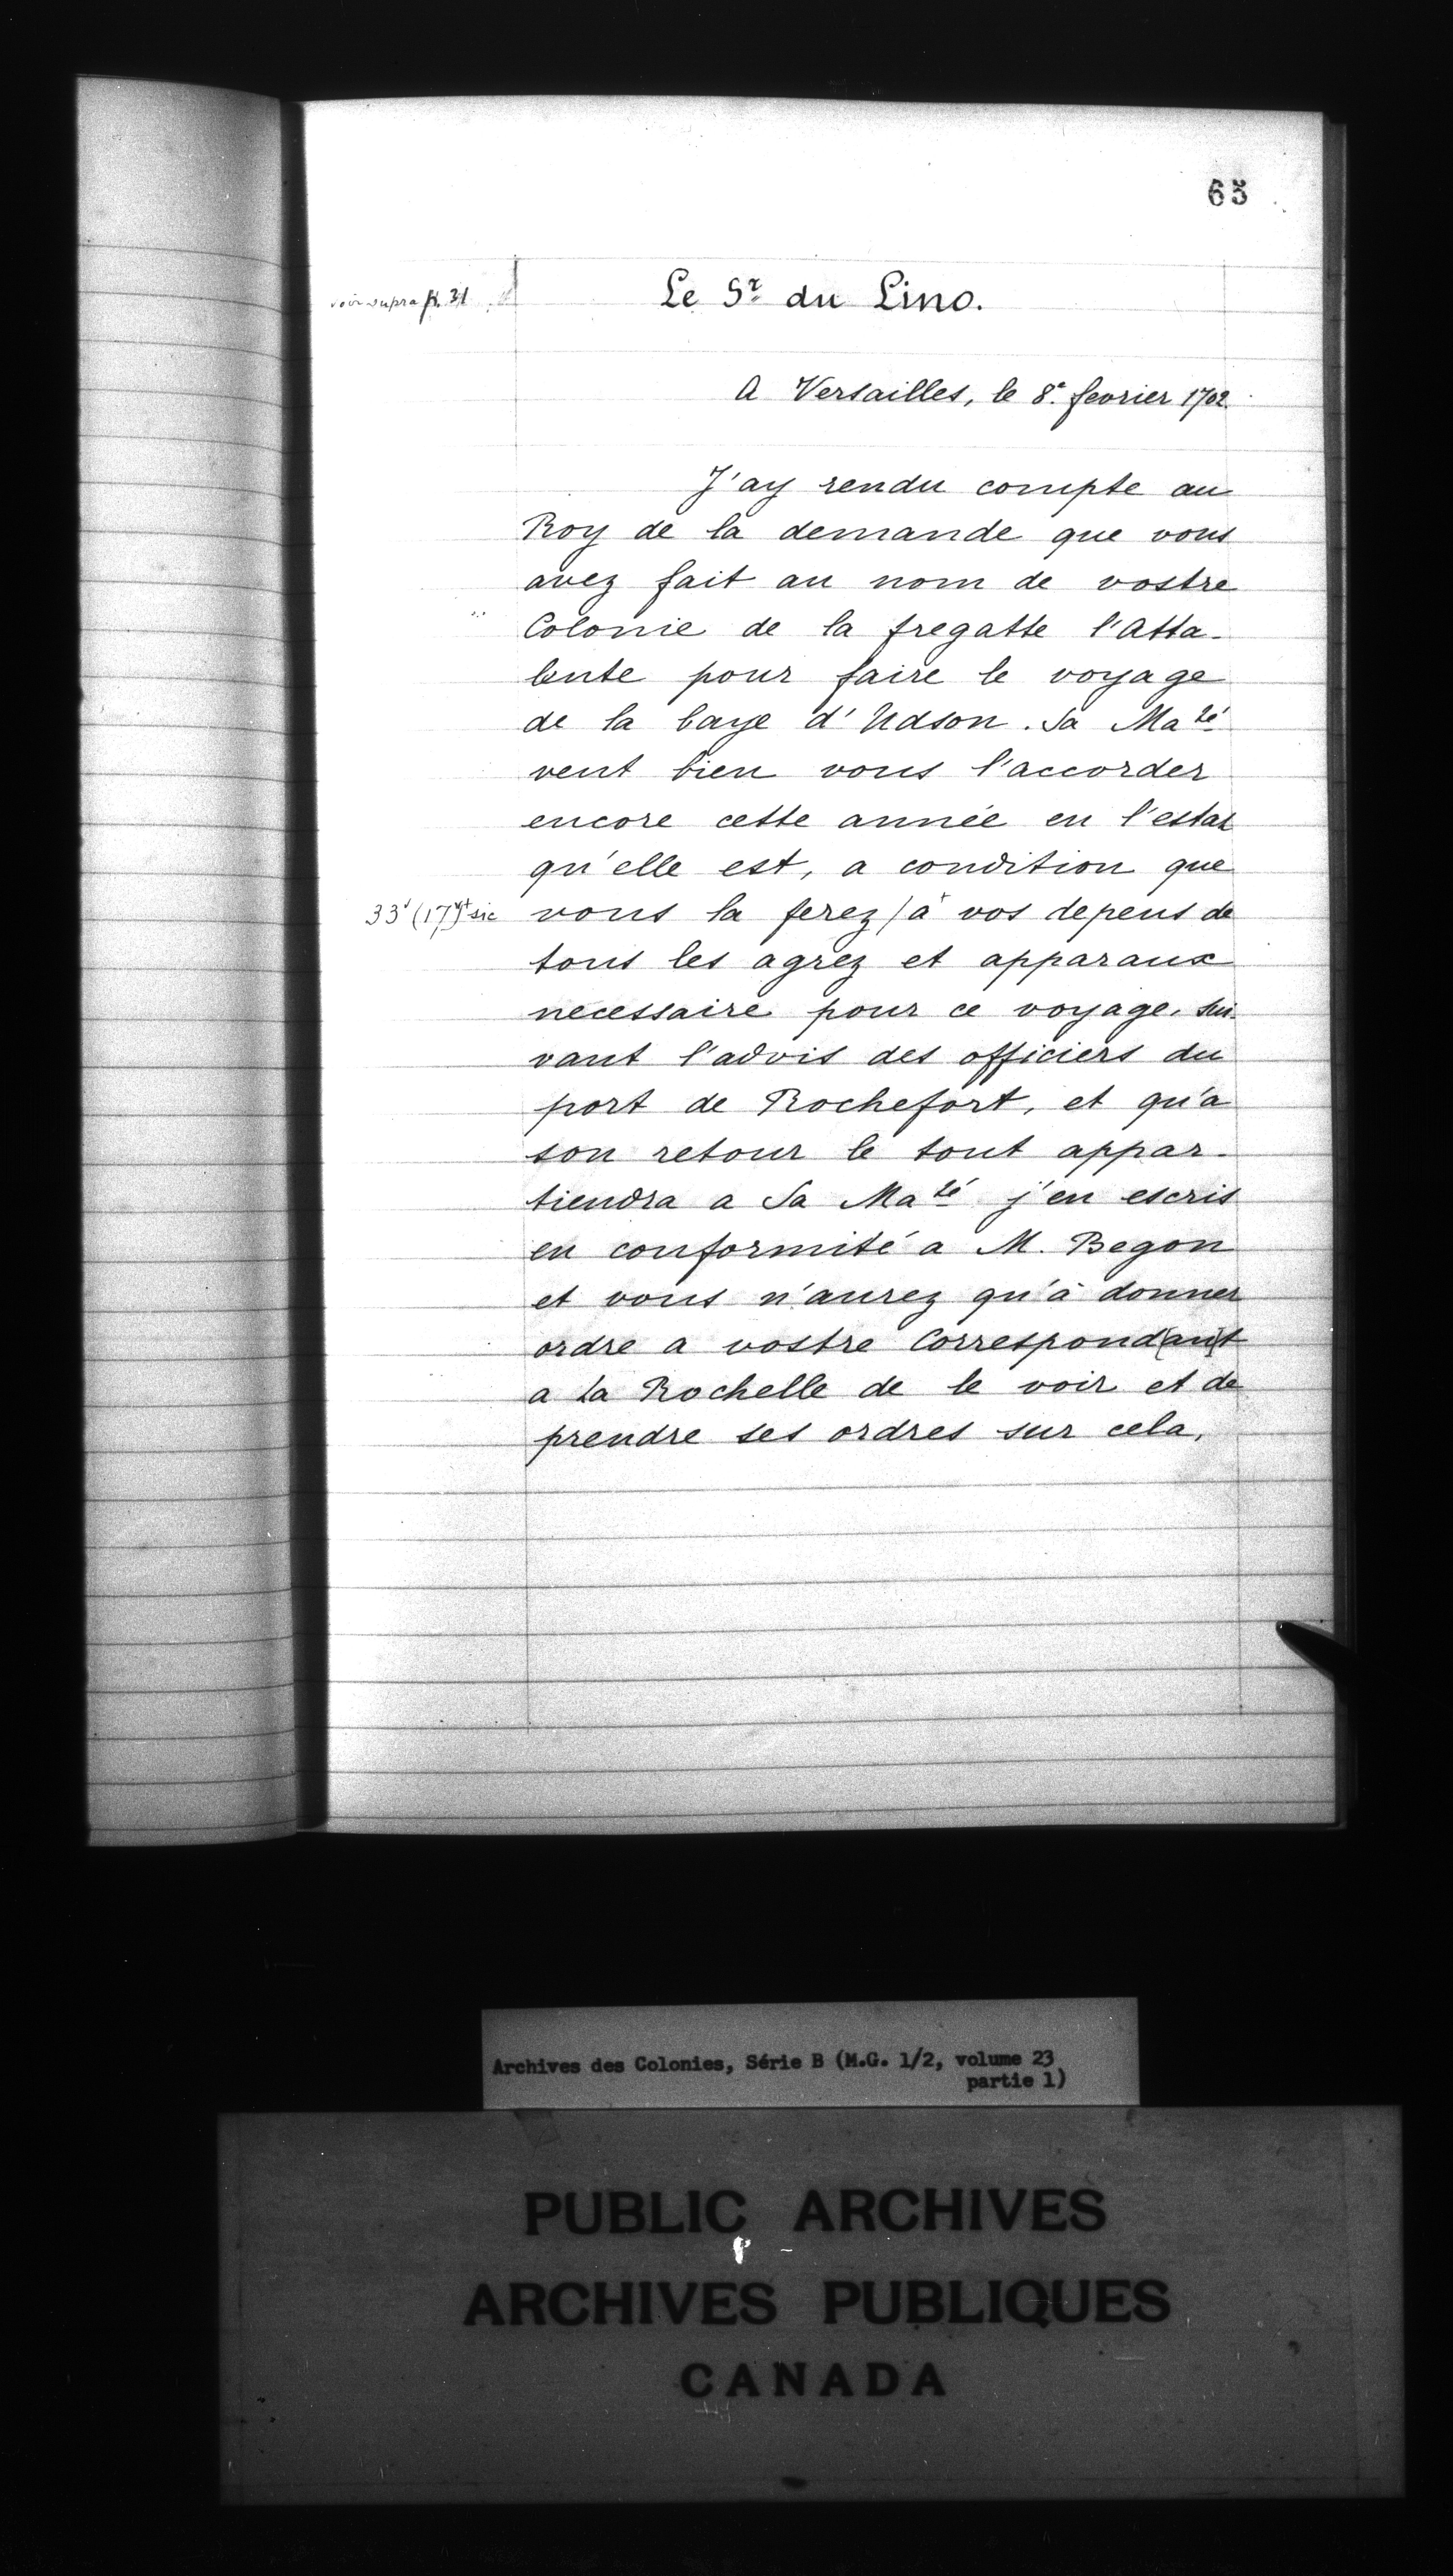 65
voir supra p. 31
Le Sr du Lino.
A Versailles, le 8e fevrier 1702.
J'ay rendu compte au
Roy de la demande que vous
avez fait au nom de vostre
Colonie de la fregatte l'Atta-
lente pour faire le voyage
de la baye d'Udson. Sa Maté
veut bien vous l'accorder
encore cette année en l'estat
qu'elle est, a condition que
33 (17) sic vous la ferez / à vos depens de
tous les agrez et apparaux
necessaire pour ce voyage, sui-
vant l'advis des officiers du
port de Rochefort, et qu'a
son retour le tout appar-
tiendra a Sa Maté j'en escris
en conformité a M. Begon
et vous n'aurez qu'à donner
ordre a vostre Correspond(an)t
a la Rochelle de le voir et de
prendre ses ordres sur cela.
Archives des Colonies, Série B (M.G. 1/2, volume 23
partie 1)
PUBLIC ARCHIVES
ARCHIVES PUBLIQUES
CANADA